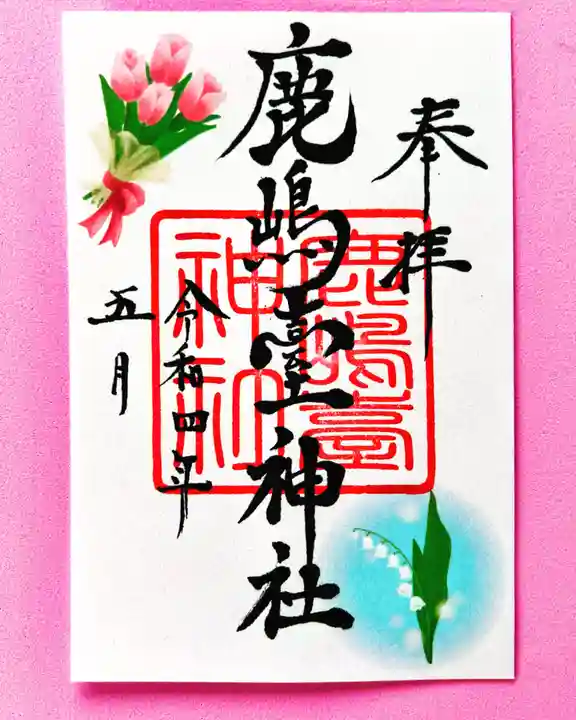 奉拝
鹿嶋臺神社
鹿嶋臺
神社
令和四年
五月